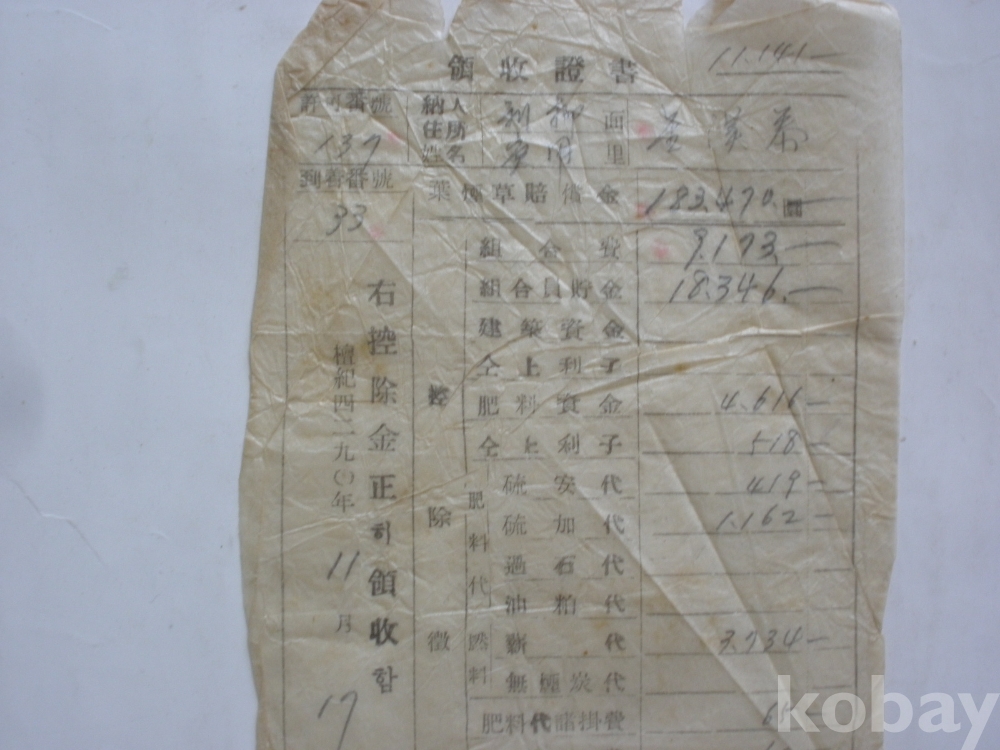 領收證書
11.141—
許可番號
137
到着番號
33
納入
住所
姓名
面
里
葉煙草賠償金 183.470.圜—
組合費 9.173.—
組合員貯金 18.346.—
建築資金
仝上利子
肥料資金 4.616—
仝上利子 518—
控除徵
肥料代
硫安代 419—
硫加代 1.162—
過石代
油粕代
燃料
薪代 3.734—
無煙炭代
肥料代諸掛費
右控除金正히領收함
檀紀四二九〇年
11月
17
kobay